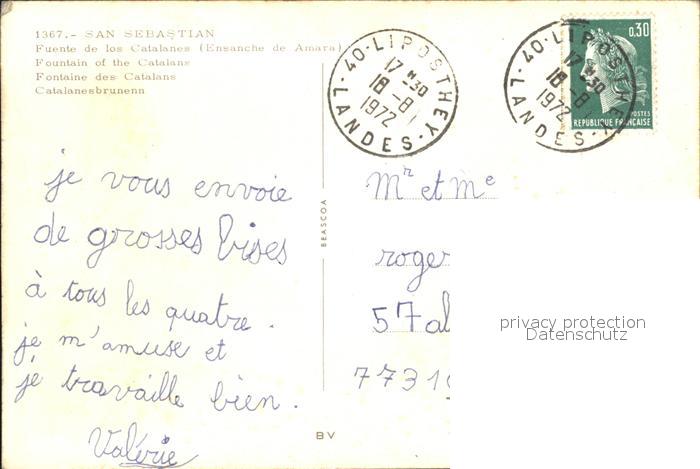 1367.- SAN SEBASTIAN
Fuente de los Catalanes (Ensanche de Amara)
Fountain of the Catalans
Fontaine des Catalans
Catalanesbrunenn
40-LIPOSTHEY
17 H 30
18 -8
1972
LANDES
40-LIPOSTHEY
17 H 30
18 -8
1972
LANDES
0,30
POSTES
REPUBLIQUE FRANÇAISE
je vous envoie
de grosses bises
à tous les quatre.
je m'amuse et
je travaille bien.
Valérie
BEASCOA
BV
Mr et Me
roger
57 al
7731
privacy protection
Datenschutz